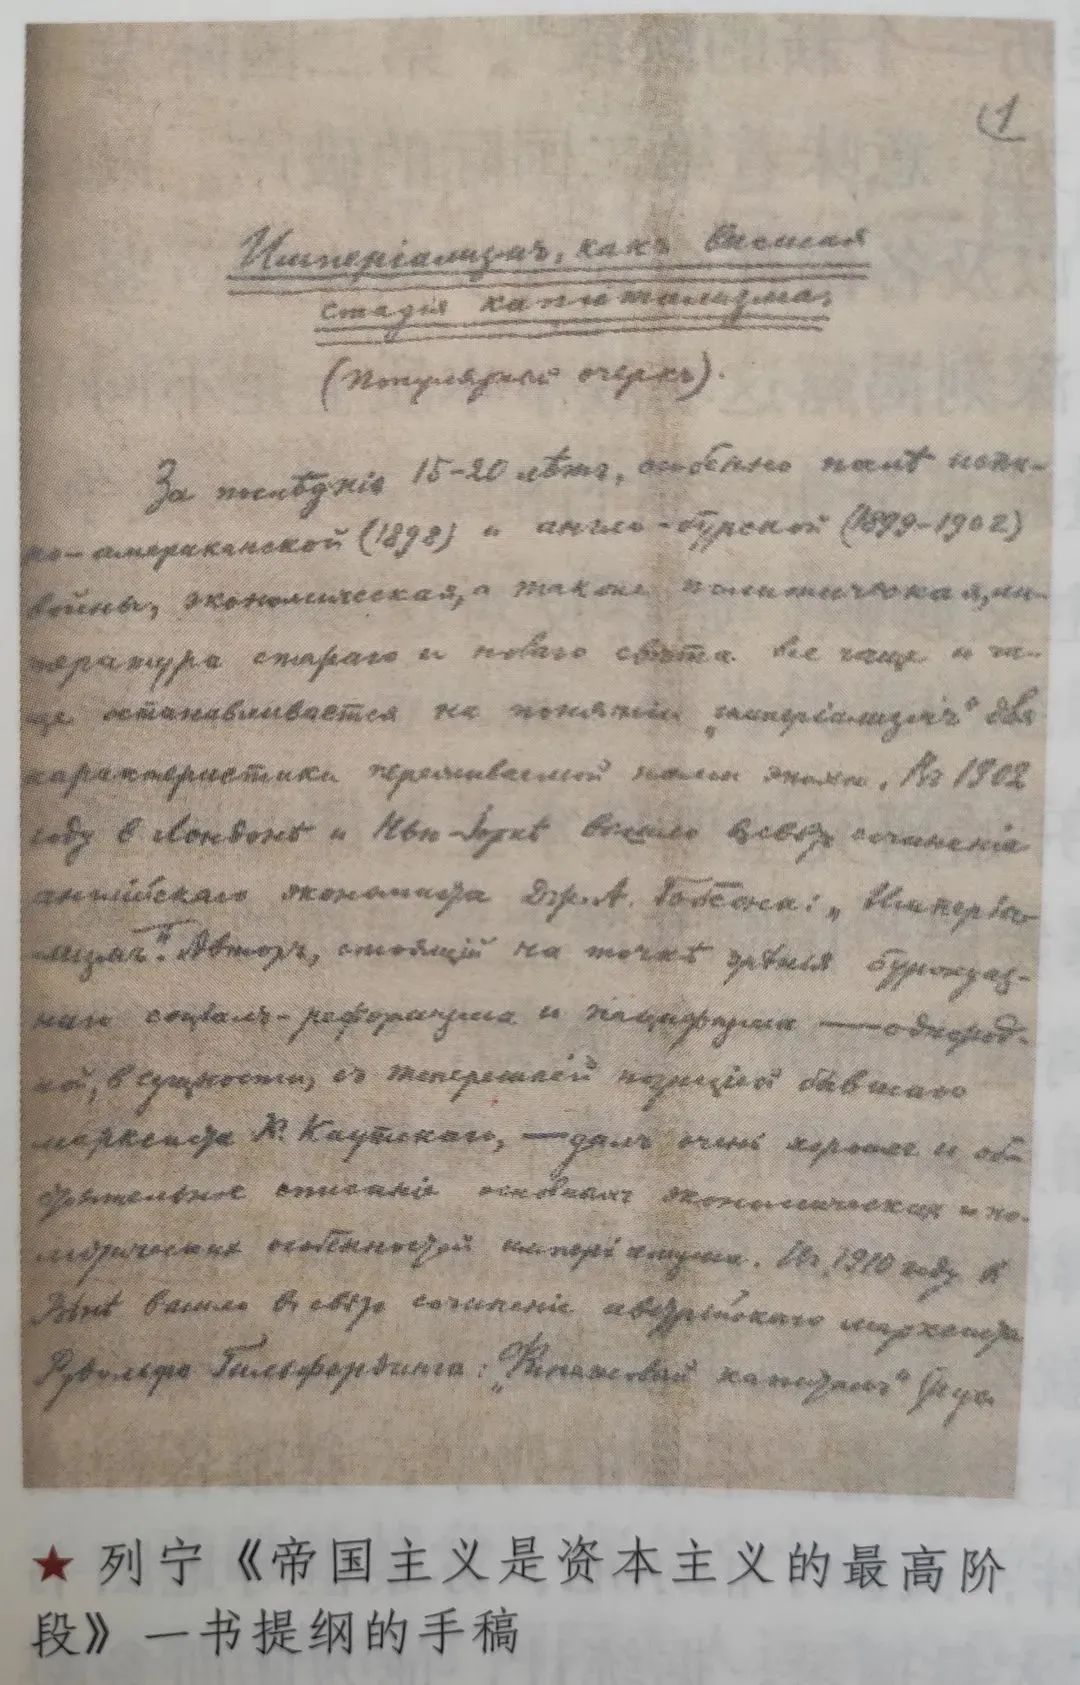 1
Имперіализмъ, какъ высшая
стадія капитализма,
(Популярный очеркъ).
За послѣднія 15-20 лѣтъ, особенно послѣ испа-
но-американской (1898) и англо-бурской (1899-1902)
войны, экономическая, а также политическая, ли-
тература стараго и новаго свѣта все чаще и ча-
ще останавливается на понятіи „имперіализмъ“ для
характеристики переживаемой нами эпохи. Въ 1902
году в Лондонѣ и Нью-Іоркѣ вышло въ свѣтъ сочиненіе
англійскаго экономиста Дж. А. Гобсона: „Имперіа-
лизмъ“. Авторъ, стоящій на точкѣ зрѣнія буржуаз-
наго соціалъ-реформизма и пацифизма — однород-
ной, в сущности, съ теперешней позиціей бывшаго
марксиста К. Каутскаго, — далъ очень хорошее и обс
тоятельное описаніе основныхъ экономических и по-
литических особенностей имперіализма. Въ 1910 году в
Вѣнѣ вышло въ свѣтъ сочиненіе австрійскаго марксиста
Рудольфа Гильфердинга: „Финансовый капиталъ“ (рус.
★ 列宁《帝国主义是资本主义的最高阶
段》一书提纲的手稿